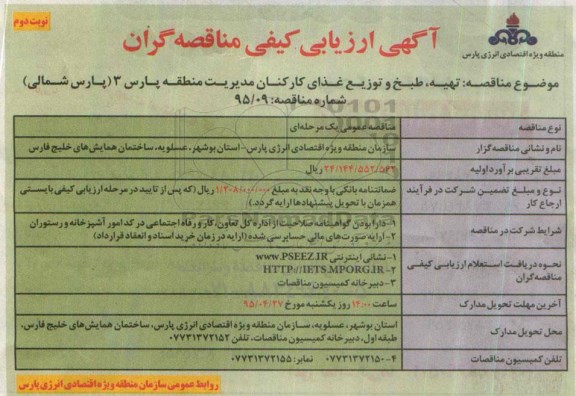 نوبت دوم
منطقه ویژه اقتصادی انرژی پارس
آگهی ارزیابی کیفی مناقصه گران
موضوع مناقصه: تهیه، طبخ و توزیع غذای کارکنان مدیریت منطقه پارس ۳ (پارس شمالی)
شماره مناقصه: ۹۵/۰۹
نوع مناقصه
مناقصه عمومی یک مرحله ای
نام و نشانی مناقصه گزار
سازمان منطقه ویژه اقتصادی انرژی پارس- استان بوشهر، عسلویه، ساختمان همایش های خلیج فارس
مبلغ تقریبی برآورد اولیه
۲۴/۱۴۴/۵۵۲/۵۶۳ ریال
نوع و مبلغ تضمین شرکت در فرآیند ارجاع کار
ضمانتنامه بانکی یا وجه نقد به مبلغ ۱/۲۰۸/۰۰۰/۰۰۰ ریال (که پس از تایید در مرحله ارزیابی کیفی بایستی
همزمان با تحویل پیشنهادها ارایه گردد.)
شرایط شرکت در مناقصه
۱- دارا بودن گواهینامه صلاحیت از اداره کل تعاون، کار و رفاه اجتماعی در کد امور آشپزخانه و رستوران
۲- ارایه صورت های مالی حسابرسی شده (ارایه در زمان خرید اسناد و انعقاد قرارداد)
نحوه دریافت استعلام ارزیابی کیفی
مناقصه گران
۱- نشانی اینترنتی WWW.PSEEZ.IR
۲- HTTP://IETS.MPORG.IR
۳- دبیرخانه کمیسیون مناقصات
آخرین مهلت تحویل مدارک
ساعت ۱۲:۰۰ روز یکشنبه مورخ ۹۵/۰۴/۲۷
محل تحویل مدارک
استان بوشهر، عسلویه، سازمان منطقه ویژه اقتصادی انرژی پارس، ساختمان همایش های خلیج فارس،
طبقه اول، دبیرخانه کمیسیون مناقصات، تلفن ۰۷۷۳۱۳۷۲۱۵۲
تلفن کمیسیون مناقصات
۰۷۷۳۱۳۷۲۱۵۰-۴ نمابر: ۰۷۷۳۱۳۷۲۱۵۵
روابط عمومی سازمان منطقه ویژه اقتصادی انرژی پارس